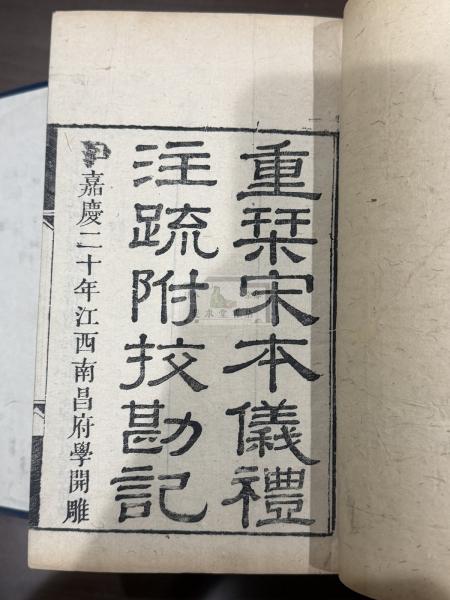 重栞宋本儀禮
注䟽附挍勘記
嘉慶二十年江西南昌府學開雕